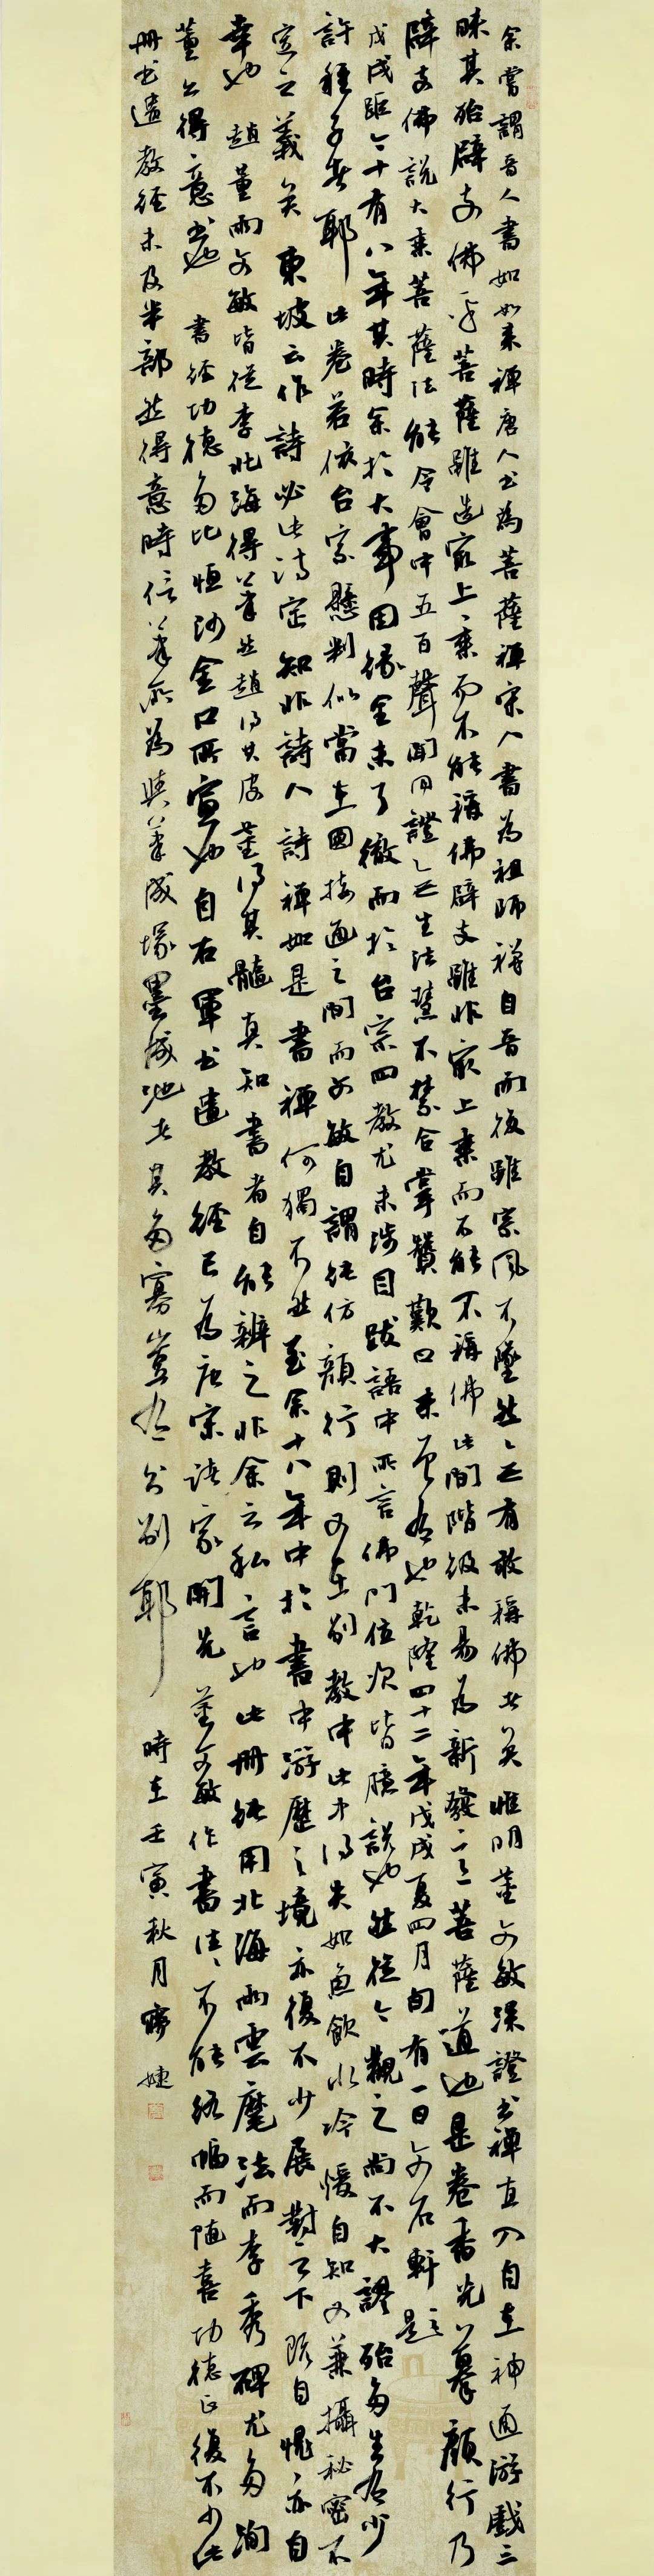 余嘗謂晉人書如如來禪唐人書為菩薩禪宋人書為祖師禪自晉而後雖宗風不墜然亡有敢稱佛者矣惟明董文敏深證書禪直入自在神通游戲三
昧其殆辟支佛乎菩薩雖造最上乘而不能稱佛辟支雖非最上乘而不能不稱佛此間階級未易為新發意菩薩道也是卷香光摹顏行乃
辟支佛說大乘菩薩法能令會中五百聲聞同證亡生法慧不禁合掌贊歎口未曾有也乾隆四十二年戊戌夏四月旬有一日文石軒題
戊戌距今十有八年其時余於大事因緣全未了徹而於台宗四教尤未涉目跋語中所言佛門位次皆臆說也然從今觀之尚不大謬殆多生有少
許種子者耶此卷若依台宗懸判似當在圓接通之間而文敏自謂純仿顏行則又在別教中此中得失如魚飲水冷暖自知又兼攝秘密不
定之義矣東坡云作詩必此詩定知非詩人詩禪如是書禪何獨不然至余十八年中於書中游歷之境亦復不少展對之下既自愧亦自
幸也趙董兩文敏皆從李北海得筆然趙得其皮董得其髓真知書者自能辨之非余之私言也此冊純用北海兩雲麾法而李秀碑尤多洵
董公得意書也書經功德多比恒沙金口所宣也自右軍書遺教經已為唐宋諸家開先董文敏作書往往不能終幅而隨喜功德正復不少此
冊書遺教經未及半部然得意時信筆所為與筆成塚墨成池者其多寡豈有分別耶時在壬寅秋月